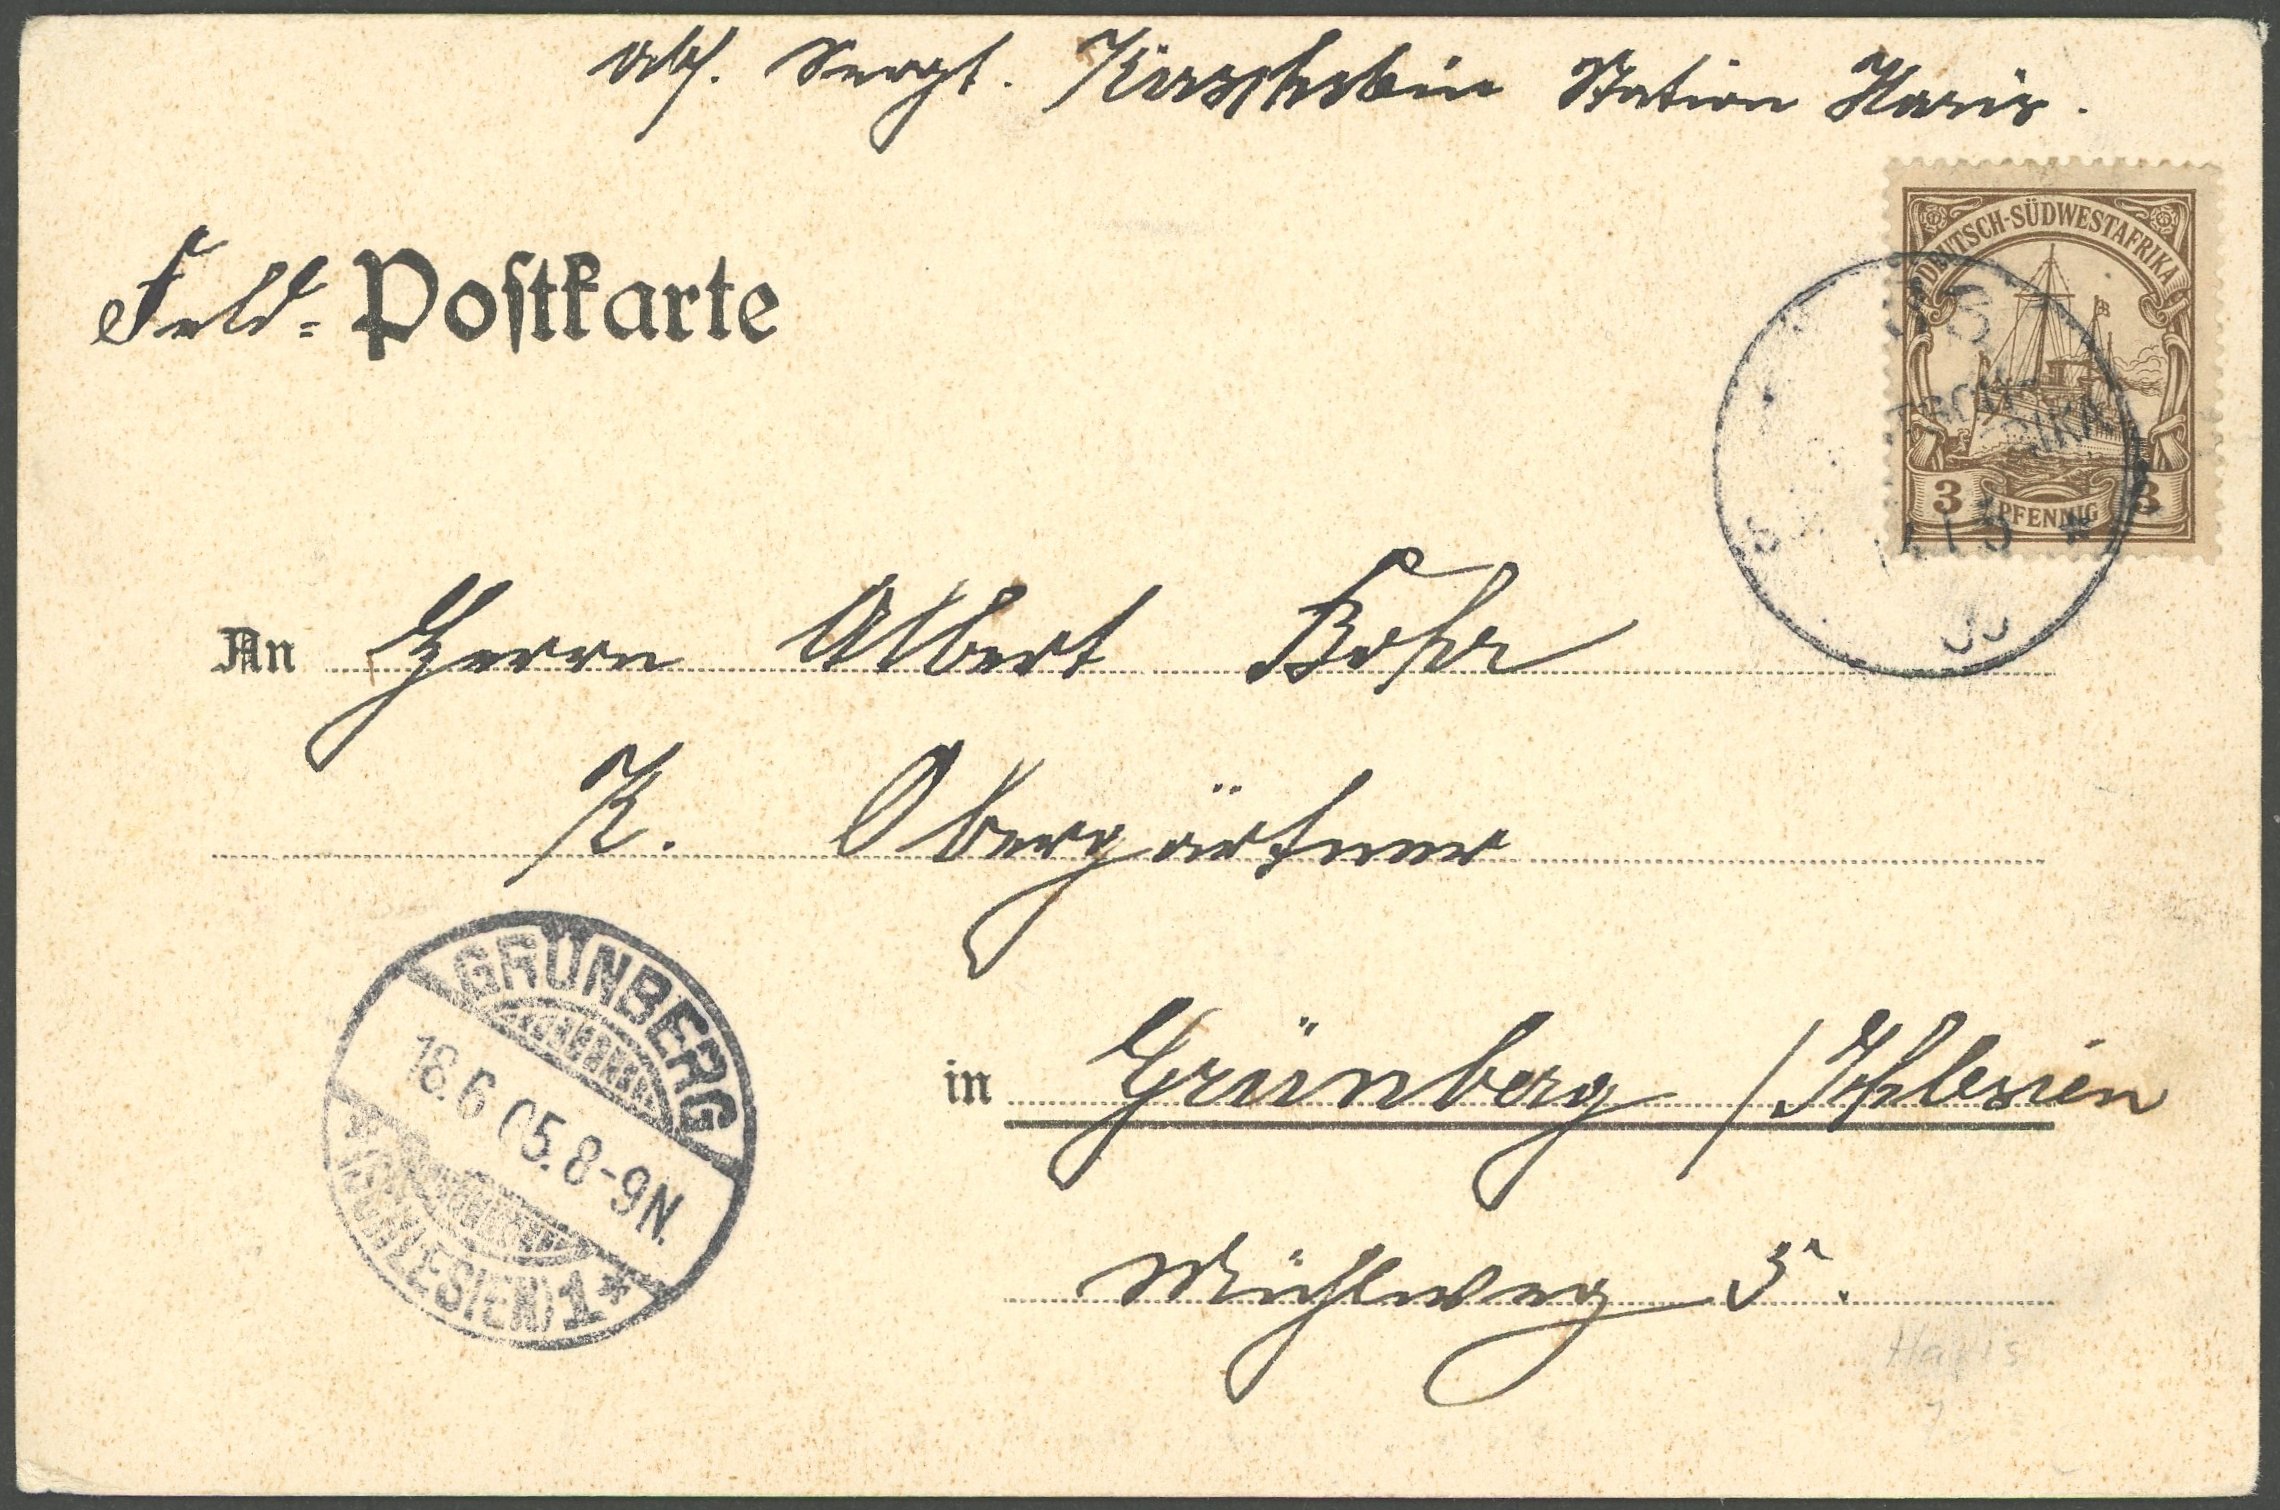 Abs. Sergt. Kirschstein Station Haris.
Feld= Postkarte
DEUTSCH-SÜDWESTAFRIKA
3 PFENNIG 3
An Herrn Albert Bohr
K. Obergärtner
GRÜNBERG
18.6 05. 8-9N.
(SCHLESIEN) 1 *
in Grünberg / Schlesien
Mühlweg 5.
Haris